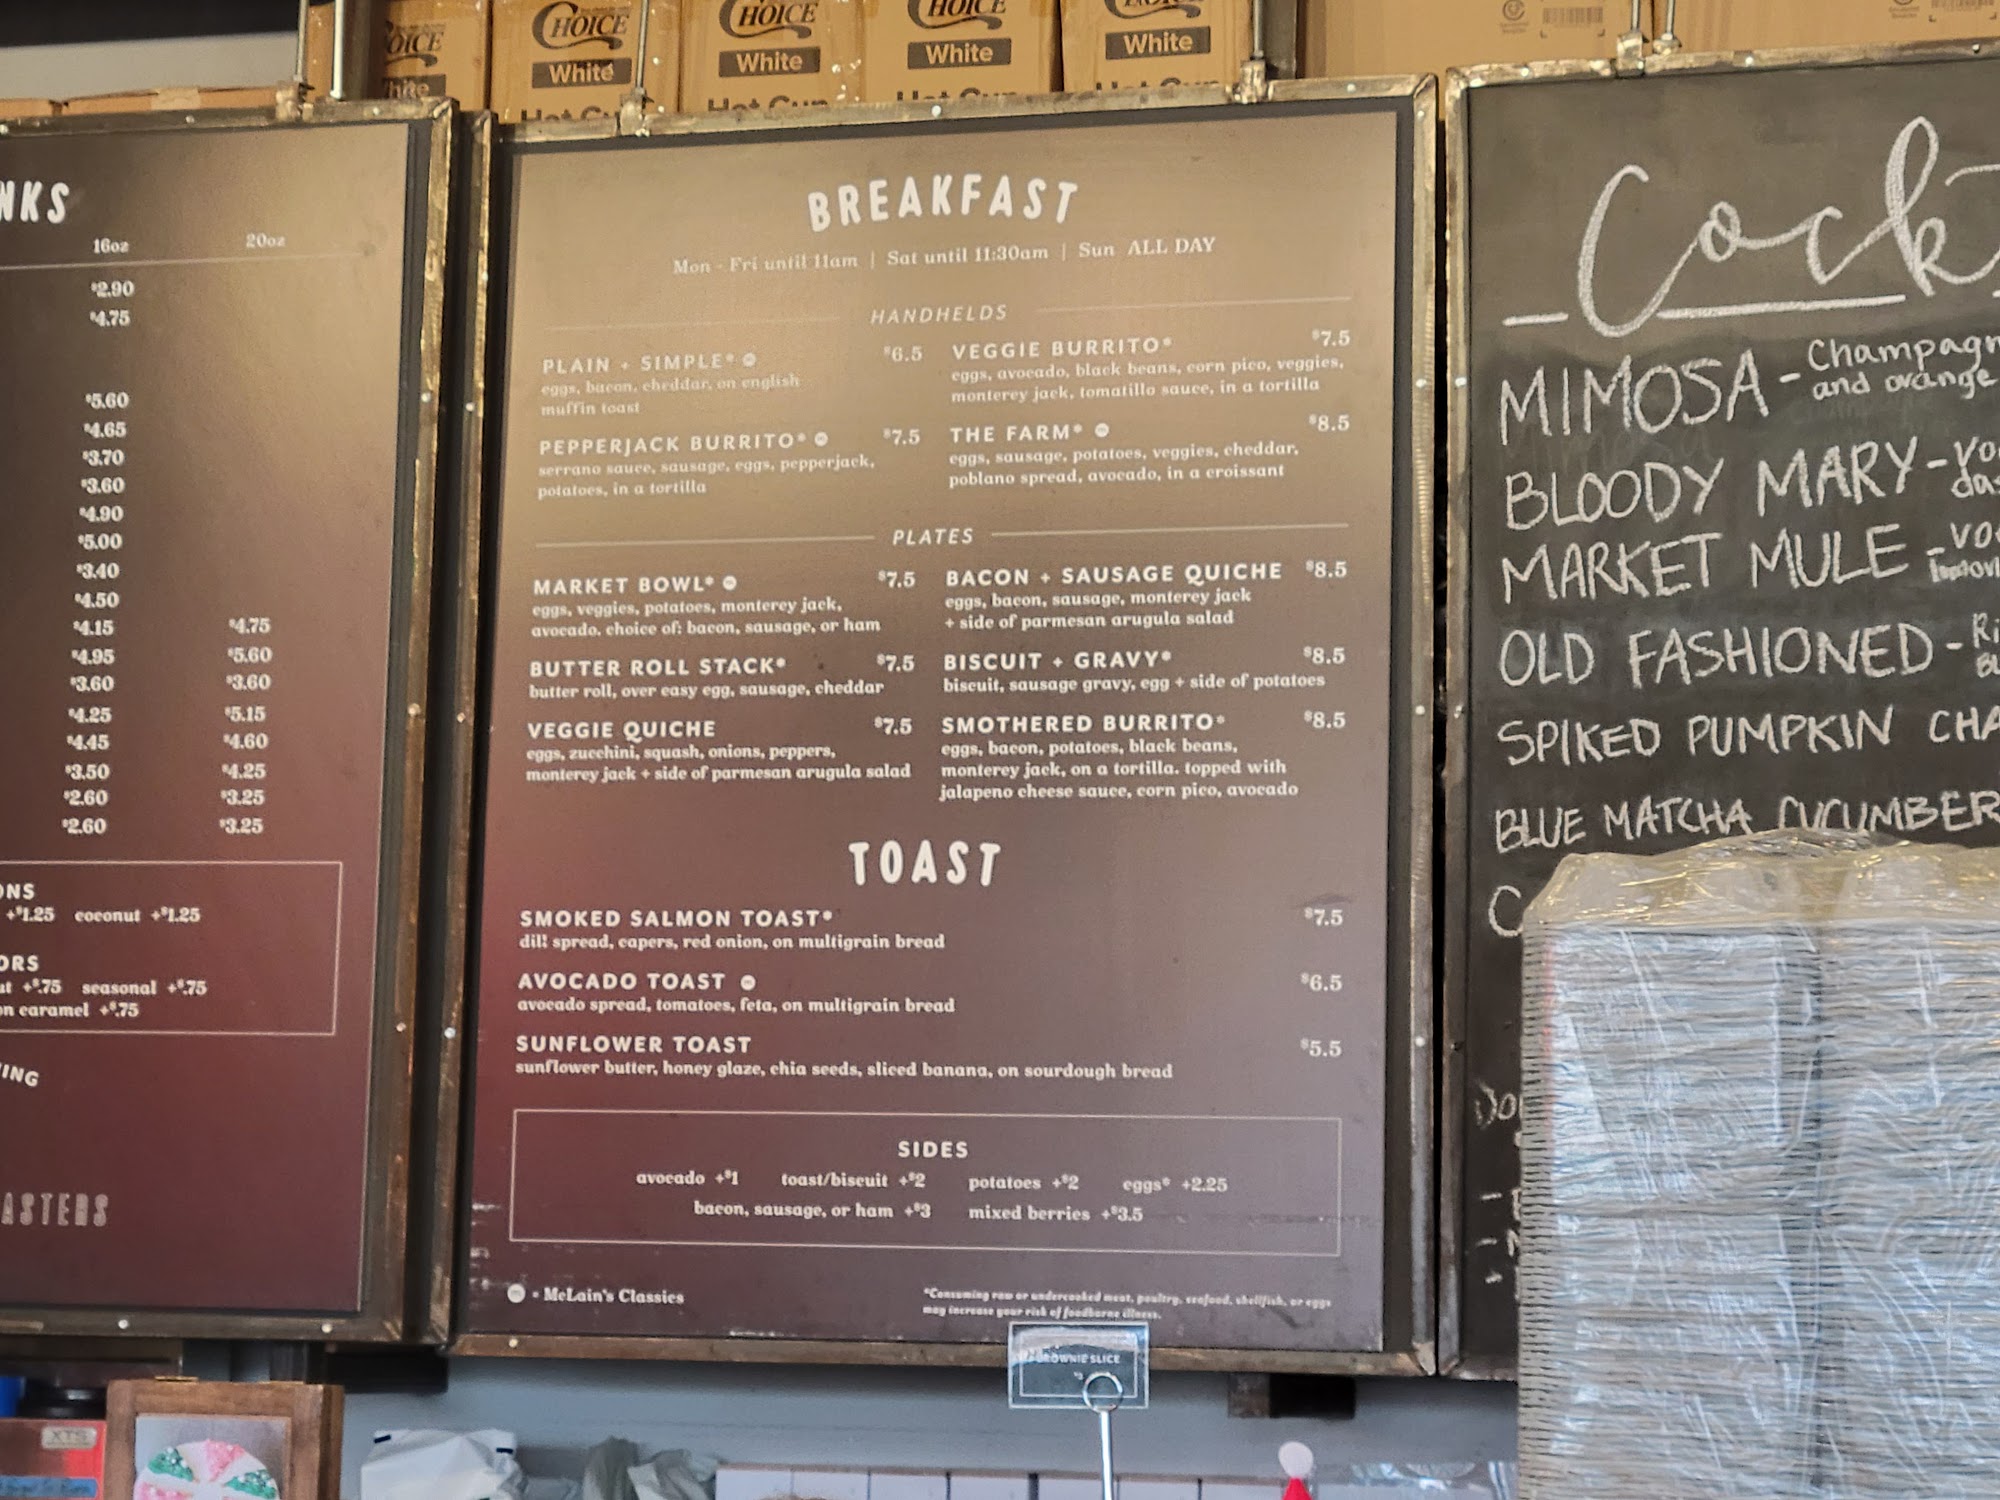 CHOICE
White
CHOICE
White
CHOICE
White
CHOICE
White
Hot Cup
NKS
16oz 20oz
$2.90
$4.75
$5.60
$4.65
$3.70
$3.60
$4.90
$5.00
$3.40
$4.50
$4.15 $4.75
$4.95 $5.60
$3.60 $3.60
$4.25 $5.15
$4.45 $4.60
$3.50 $4.25
$2.60 $3.25
$2.60 $3.25
ONS
+$1.25 coconut +$1.25
ORS
+$.75 seasonal +$.75
caramel +$.75
ING
ASTERS
BREAKFAST
Mon - Fri until 11am | Sat until 11:30am | Sun ALL DAY
HANDHELDS
PLAIN + SIMPLE* $6.5
eggs, bacon, cheddar, on english
muffin toast
PEPPERJACK BURRITO* $7.5
serrano sauce, sausage, eggs, pepperjack,
potatoes, in a tortilla
VEGGIE BURRITO* $7.5
eggs, avocado, black beans, corn pico, veggies,
monterey jack, tomatillo sauce, in a tortilla
THE FARM* $8.5
eggs, sausage, potatoes, veggies, cheddar,
poblano spread, avocado, in a croissant
PLATES
MARKET BOWL* $7.5
eggs, veggies, potatoes, monterey jack,
avocado. choice of: bacon, sausage, or ham
BUTTER ROLL STACK* $7.5
butter roll, over easy egg, sausage, cheddar
VEGGIE QUICHE $7.5
eggs, zucchini, squash, onions, peppers,
monterey jack + side of parmesan arugula salad
BACON + SAUSAGE QUICHE $8.5
eggs, bacon, sausage, monterey jack
+ side of parmesan arugula salad
BISCUIT + GRAVY* $8.5
biscuit, sausage gravy, egg + side of potatoes
SMOTHERED BURRITO* $8.5
eggs, bacon, potatoes, black beans,
monterey jack, on a tortilla. topped with
jalapeno cheese sauce, corn pico, avocado
TOAST
SMOKED SALMON TOAST* $7.5
dill spread, capers, red onion, on multigrain bread
AVOCADO TOAST $6.5
avocado spread, tomatoes, feta, on multigrain bread
SUNFLOWER TOAST $5.5
sunflower butter, honey glaze, chia seeds, sliced banana, on sourdough bread
SIDES
avocado +$1 toast/biscuit +$2 potatoes +$2 eggs* +2.25
bacon, sausage, or ham +$3 mixed berries +$3.5
= McLain's Classics
*Consuming raw or undercooked meat, poultry, seafood, shellfish, or eggs
may increase your risk of foodborne illness.
BROWNIE SLICE
Cock
MIMOSA - Champagn
and orange
BLOODY MARY - vo
das
MARKET MULE - vo
OLD FASHIONED - Ri
SPIKED PUMPKIN CHA
BLUE MATCHA CUCUMBER
XTS